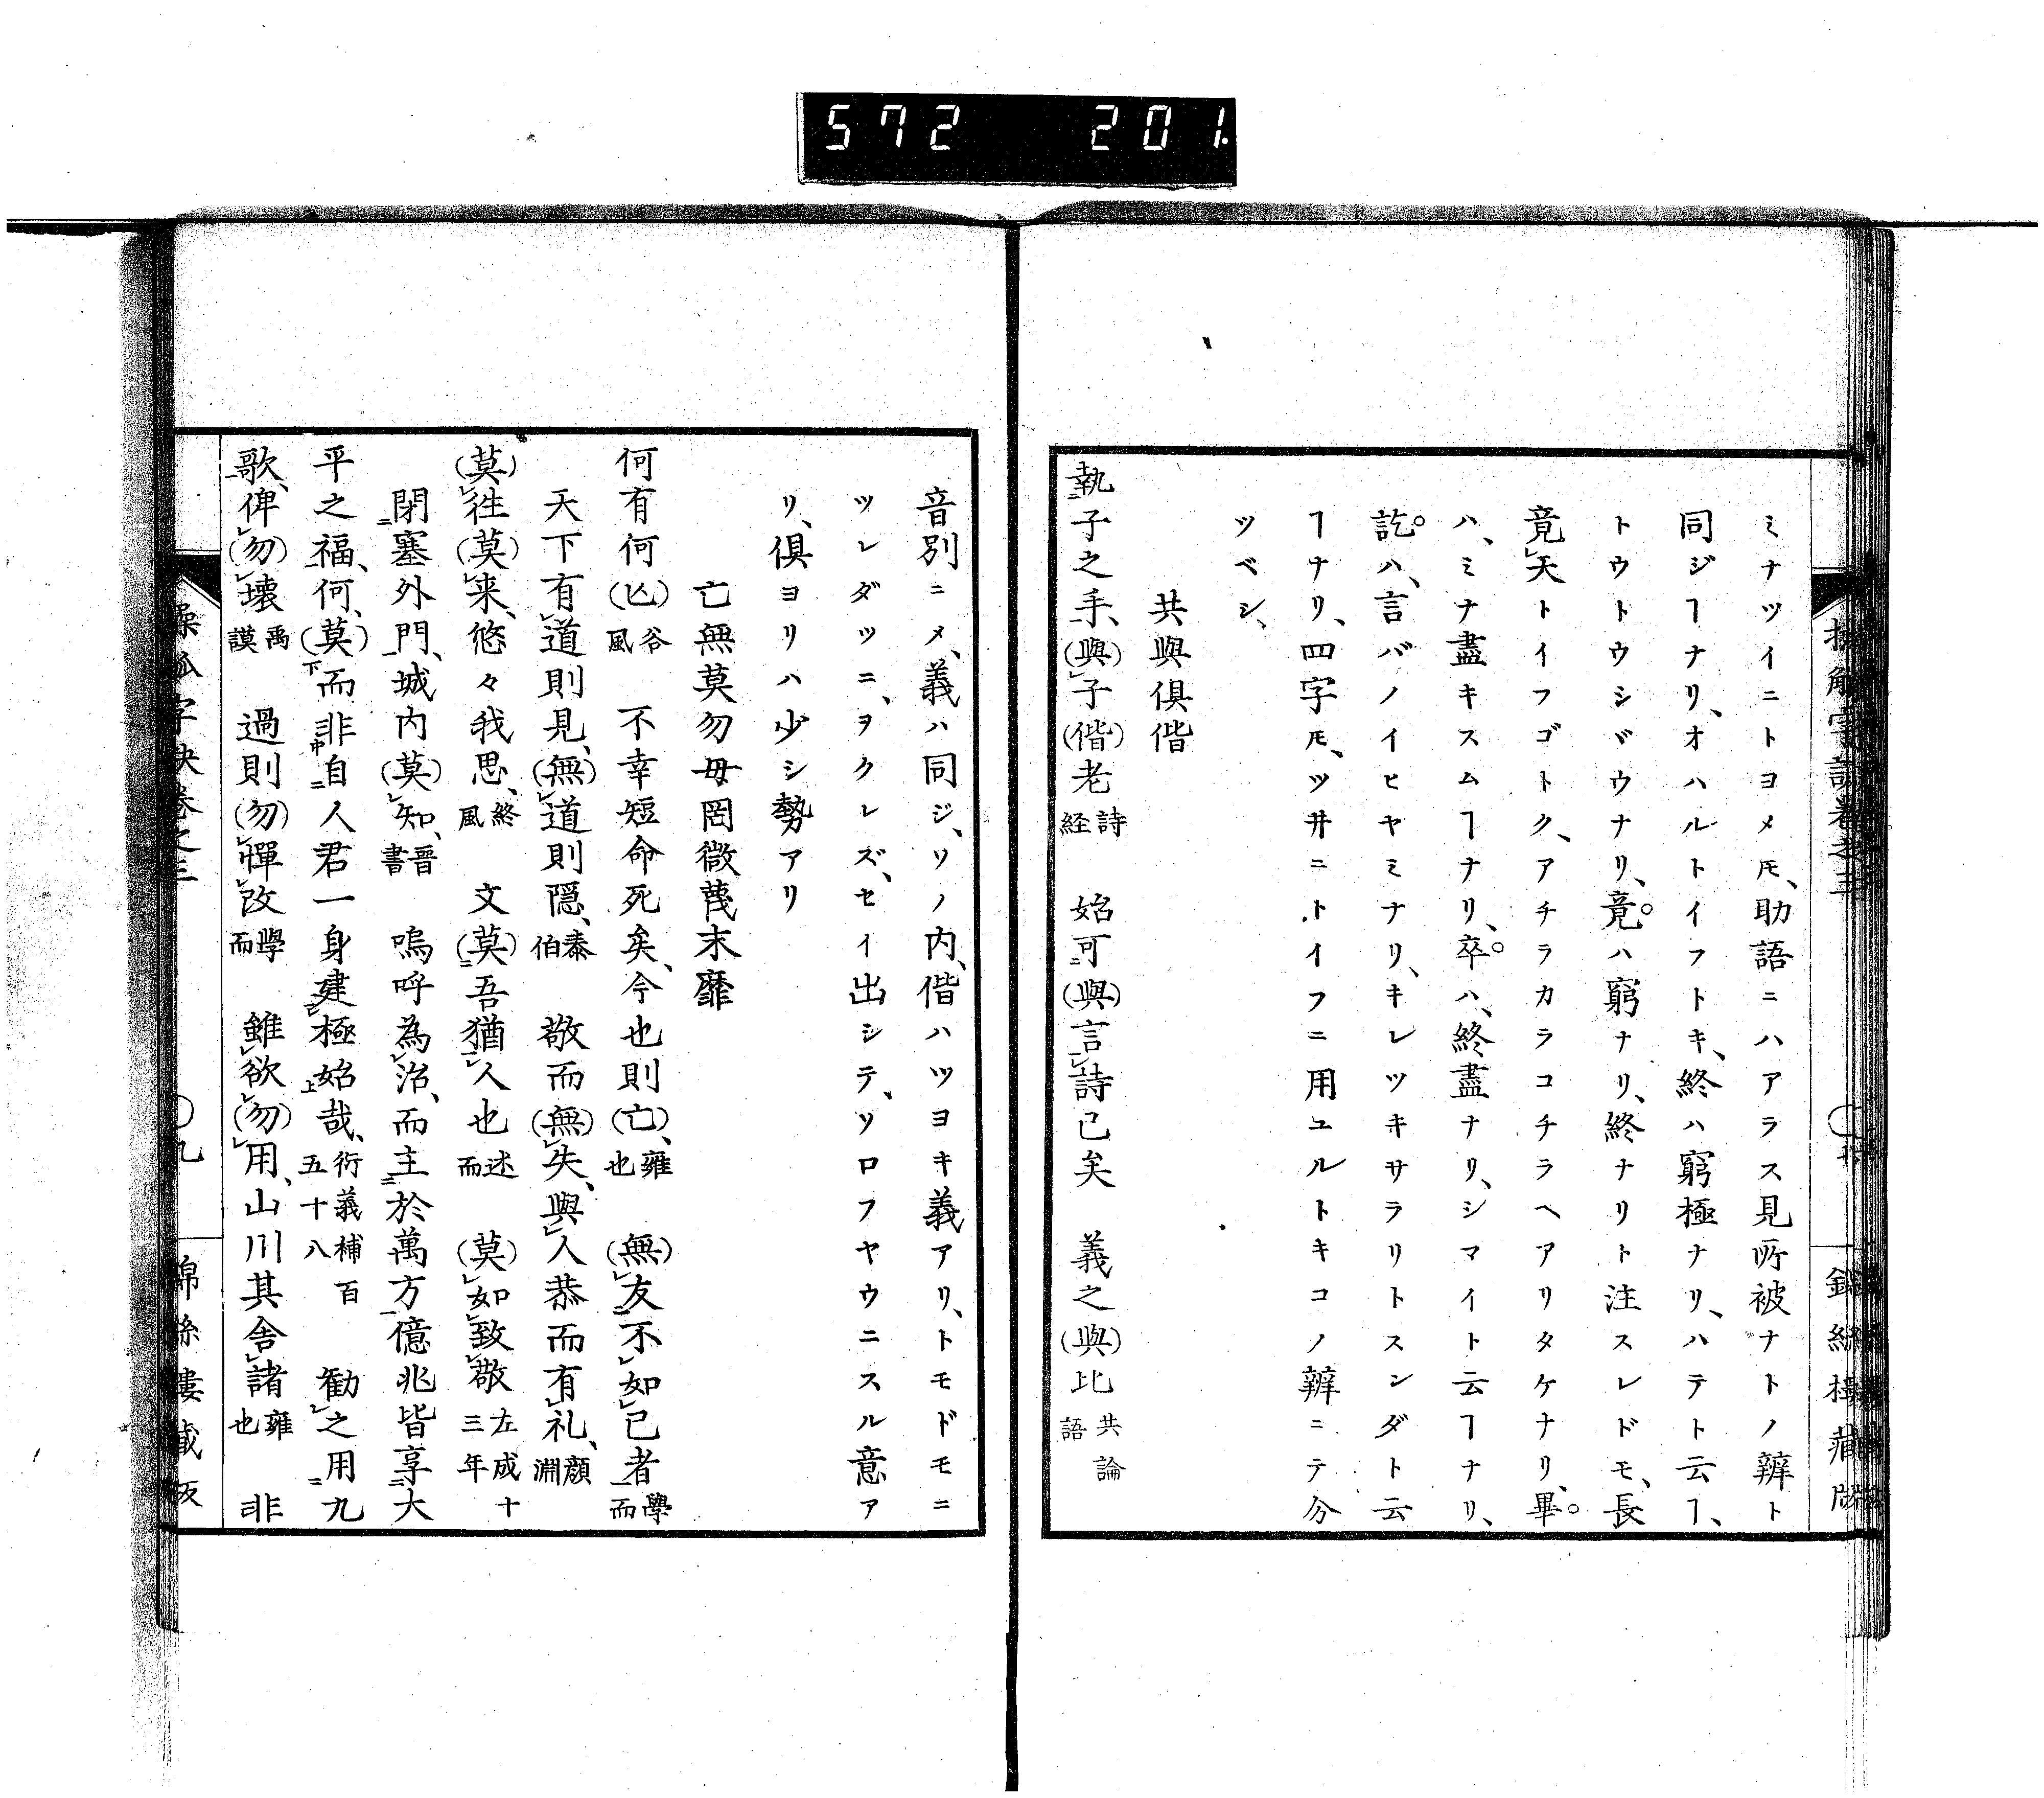 572 201.
ミナツイニトヨメ𪜈、助語ニハアラス見所被ナトノ辨ト
同ジヿナリ、オハルトイフトキ、終ハ窮極ナリ、ハテト云ヿ、
トウトウシヾウナリ、竟ハ窮ナリ、終ナリト注スレドモ、長
竟天トイフゴトク、アチラカラコチラヘアリタケナリ、畢。
ハ、ミナ盡キスムヿナリ、卒。ハ、終盡ナリ、シマイト云ヿナリ、
訖。ハ、言バノイヒヤミナリ、キレツキサラリトスンダト云
ヿナリ、四字𪜈、ツ井ニトイフニ用ユルトキコノ辨ニテ分
ツベシ、
共與俱偕
執子之手、(與)子(偕)老 詩経 始可(與)言詩已矣 義之(與)比 共論語
音別ニメ、義ハ同ジ、ソノ内、偕ハツヨキ義アリ、トモドモニ
ツレダツニ、ヲクレズ、セイ出シテ、ソロフヤウニスル意ア
リ、俱ヨリハ少シ勢アリ
亡無莫勿毋罔微蔑末靡
何有何(亾) 谷風 不幸短命死矣、今也則(亡)、雍也 (無)友不如已者 學而
天下有道則見、(無)道則隠、泰伯 敬而(無)失、與人恭而有礼、顔淵
(莫)徃(莫)来、悠々我思、終風 文(莫)吾猶人也 述而 (莫)如致敬 左成十三年
閉塞外門、城内(莫)知、晋書 嗚呼為治、而主於萬方億兆皆享大
平之福、何、(莫)而非自人君一身建極始哉、衍義補百五十八 勸之用九
歌、俾(勿)壊 禹謨 過則(勿)憚改 學而 雖欲(勿)用、山川其舎諸 雍也 非
操觚字訣卷之三 〇九 錦絲樓藏板